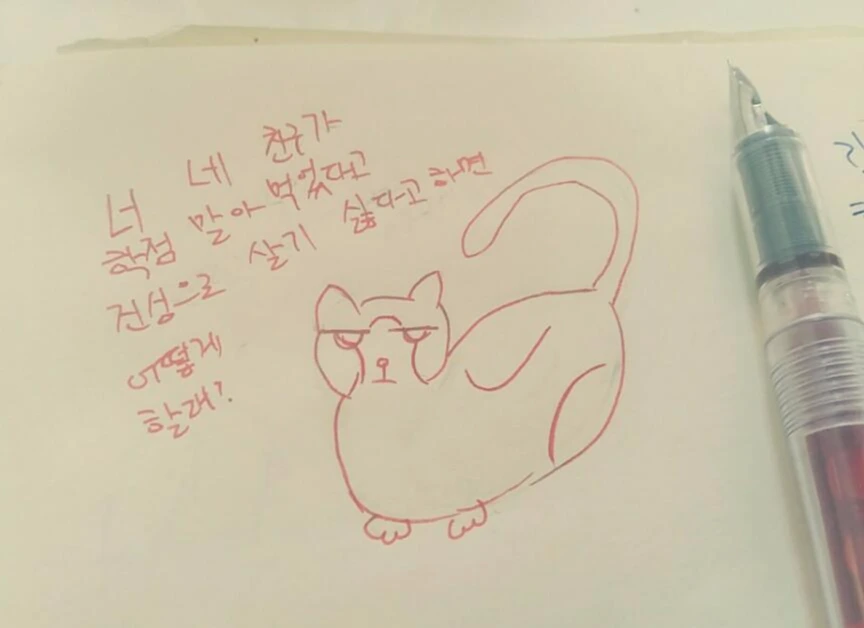 너 네 친구가
학점 말아 먹었다고
건성으로 살기 싫다고 하면
어떻게
할래?